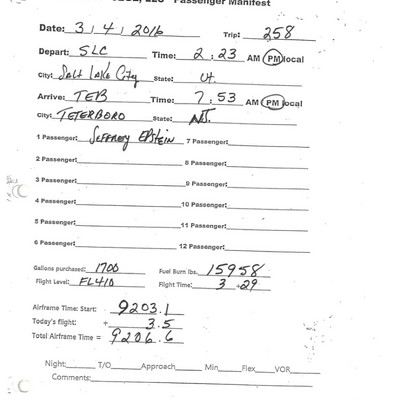 LLC Passenger Manifest
Date: 3/4/2016 Trip: 258
Depart: SLC Time: 2:23 AM PM local
City: Salt Lake City State: Ut.
Arrive: TEB Time: 7:53 AM PM local
City: TETERBORO State: NJ.
1 Passenger: JEFFREY EPSTEIN 7 Passenger:
2 Passenger: 8 Passenger:
3 Passenger: 9 Passenger:
4 Passenger: 10 Passenger:
5 Passenger: 11 Passenger:
6 Passenger: 12 Passenger:
Gallons purchased: 1700 Fuel Burn lbs. 15958
Flight Level: FL410 Flight Time: 3 +29
Airframe Time: Start: 9203.1
Today's flight: + 3.5
Total Airframe Time = 9206.6
Night: T/O Approach Min Flex VOR
Comments: